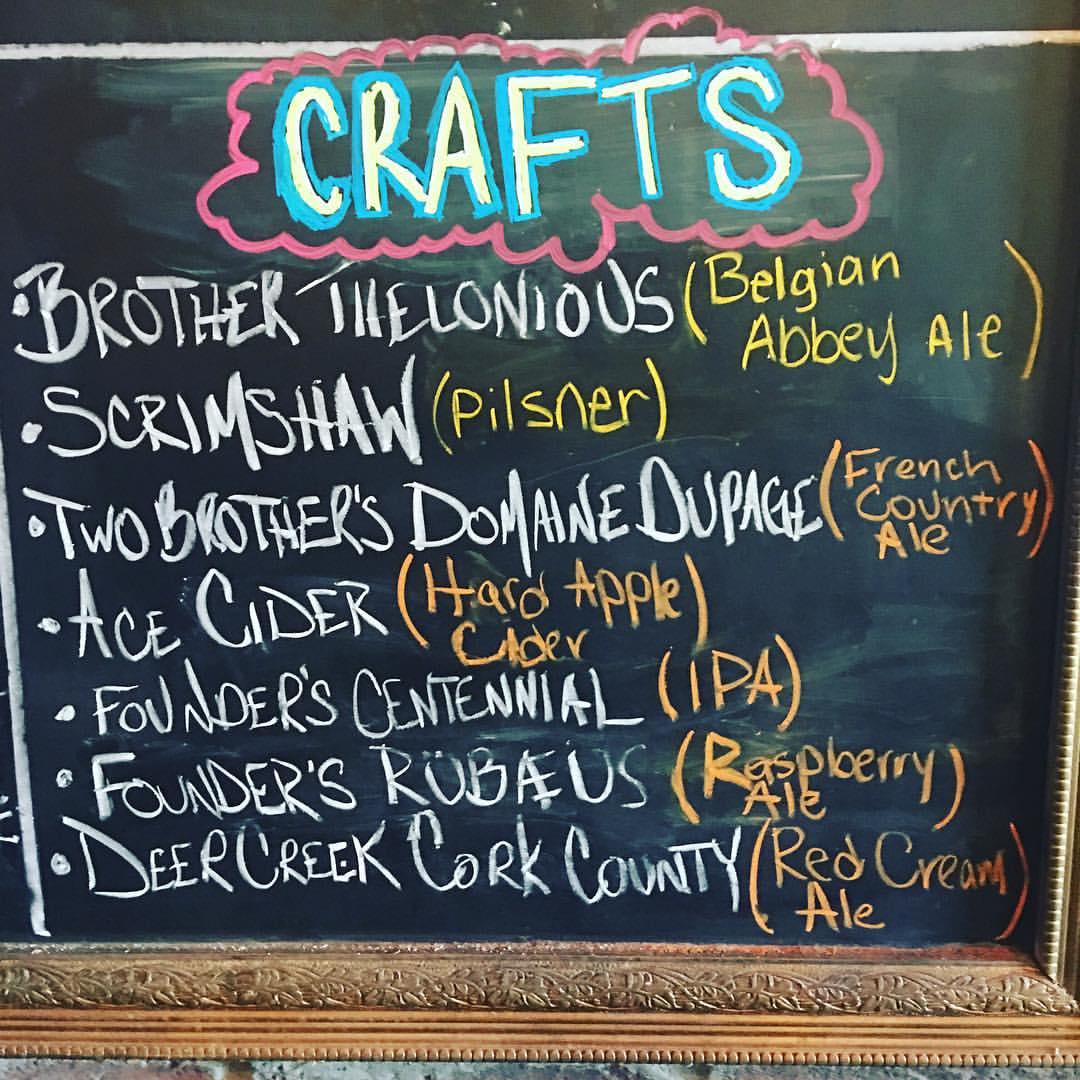 CRAFTS
• BROTHER THELONIOUS (Belgian
Abbey Ale)
• SCRIMSHAW (Pilsner)
• TWO BROTHER'S DOMAINE DUPAGE (French
Country
Ale)
• ACE CIDER (Hard Apple
Cider)
• FOUNDER'S CENTENNIAL (IPA)
• FOUNDER'S RÜBÆUS (Raspberry
Ale)
• DEER CREEK CORK COUNTY (Red Cream
Ale)